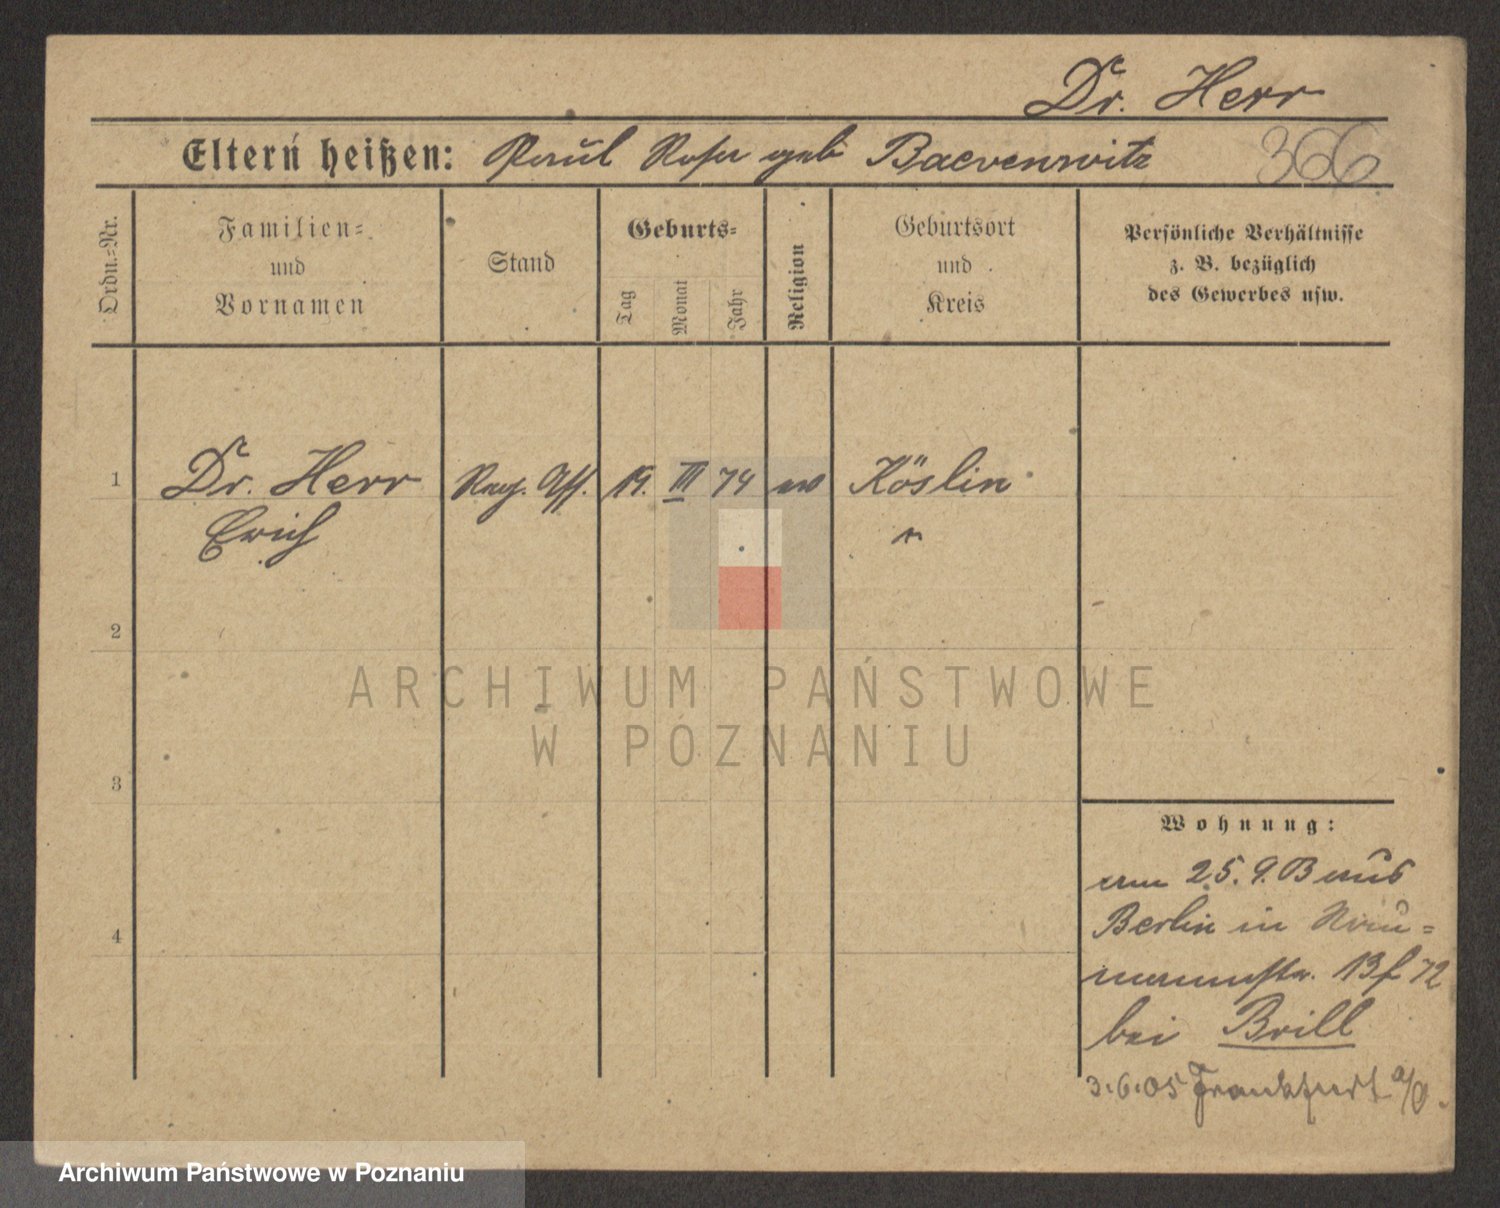 Dr. Herr
Eltern heißen: Paul Rosa geb Baerenwitz
366
Ordn.=Nr.
Familien=
und
Vornamen
Stand
Geburts=
Tag
Monat
Jahr
Religion
Geburtsort
und
Kreis
Persönliche Verhältnisse
z. B. bezüglich
des Gewerbes usw.
1 Dr. Herr Reg. Ass. 19. III 74 ev Köslin
Erich "
2
3
4
Wohnung:
am 25. 9. 03 aus
Berlin in Nau=
mannstr. 13
bei Brill
3.6.05 Frankfurt a/O.
ARCHIWUM PAŃSTWOWE
W POZNANIU
Archiwum Państwowe w Poznaniu